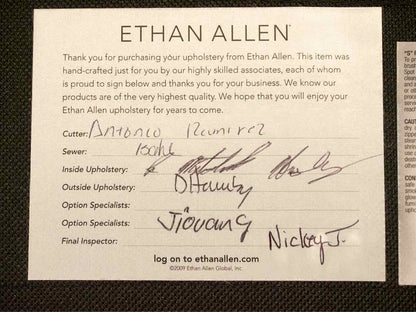 ETHAN ALLEN®
Thank you for purchasing your upholstery from Ethan Allen. This item was
hand-crafted just for you by our highly skilled associates, each of whom
is proud to sign below and thanks you for your business. We know our
products are of the very highest quality. We hope that you will enjoy your
Ethan Allen upholstery for years to come.
Cutter: Antonio Ramirez
Sewer:
Inside Upholstery:
Outside Upholstery: D Hamby
Option Specialists:
Option Specialists: Jiovang
Final Inspector: Nickey J.
log on to ethanallen.com
©2009 Ethan Allen Global, Inc.